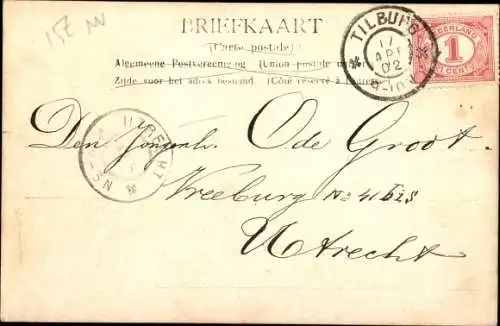 157
BRIEFKAART
(Carte postale)
Algemeene Postvereeniging (Union postale
Zijde voor het adres bestemd. (Côté réservé à
TILBURG
17
APR
02
8-10
NEDERLAND
1
CENT
UTRECHT
Den Jongenh. Ode Groot
Vreeburg No 41 bis
Utrecht